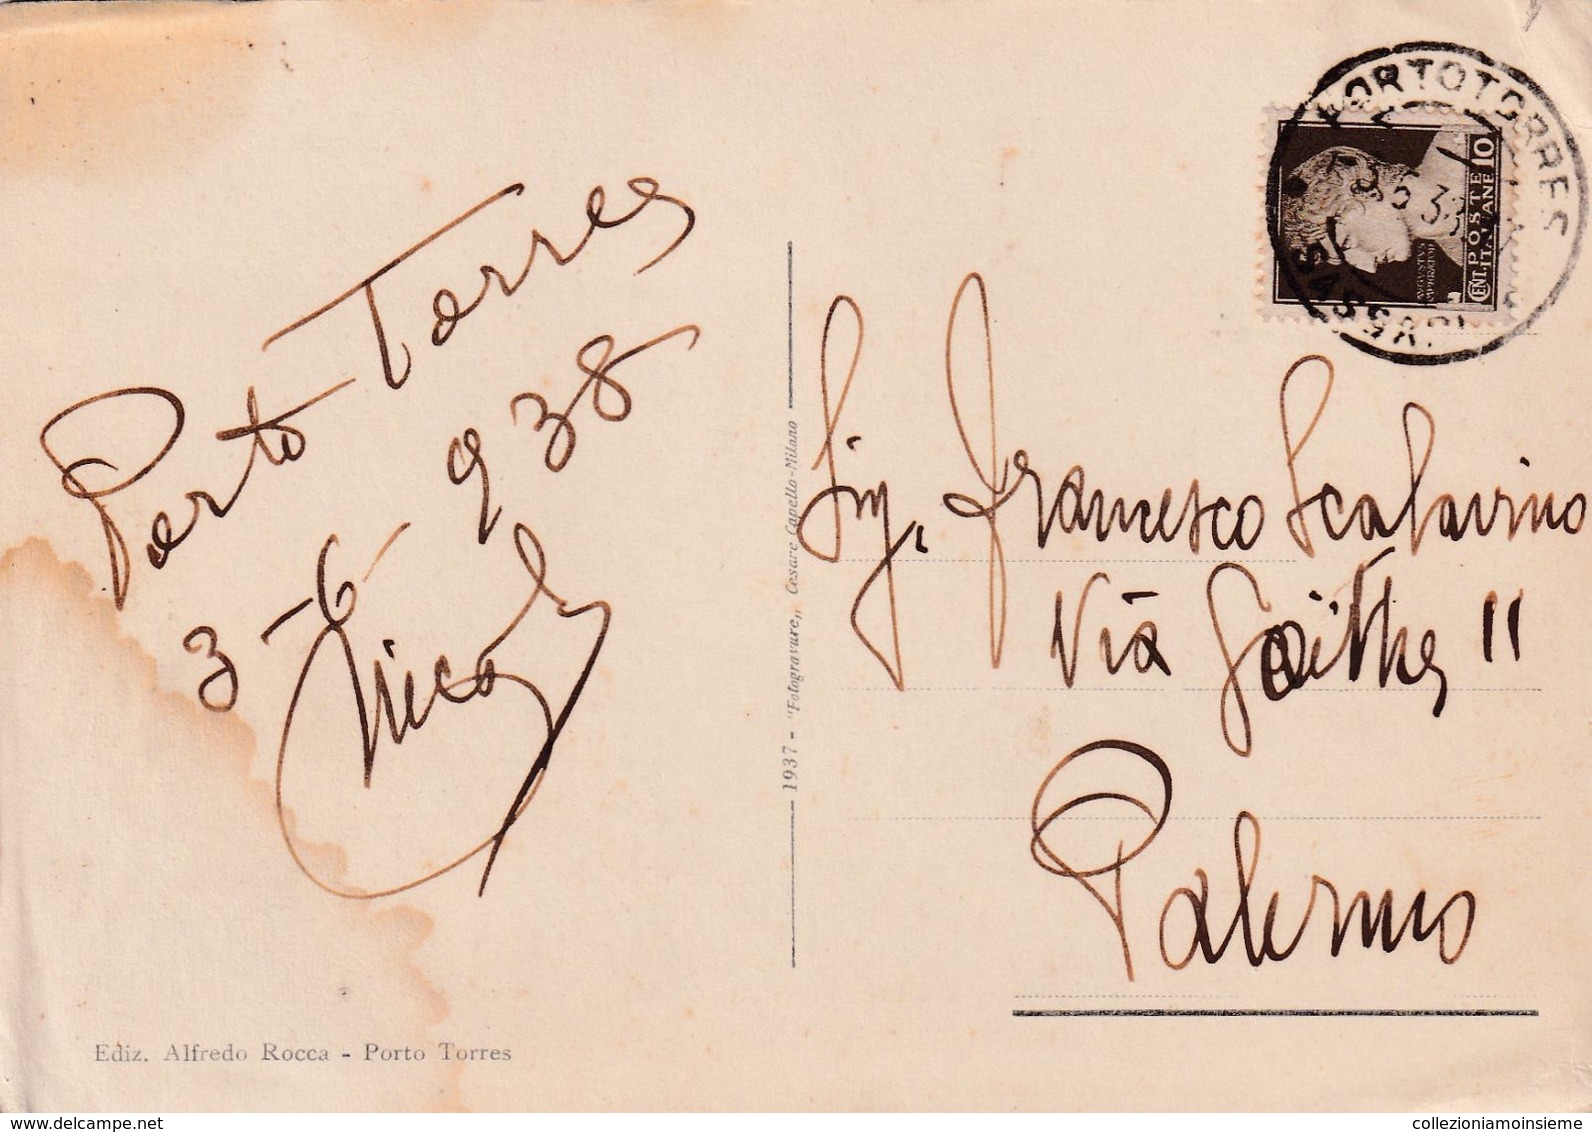 Porto Torres
3-6-938
Nicola
Ediz. Alfredo Rocca - Porto Torres
1937 - "Fotogravure„ Cesare Capello-Milano
PORTOTORRES
SASSARI
POSTE ITALIANE
CENT. 10
Sig. Francesco Scalavino
Via Goithe 11
Palermo
collezioniamoinsieme